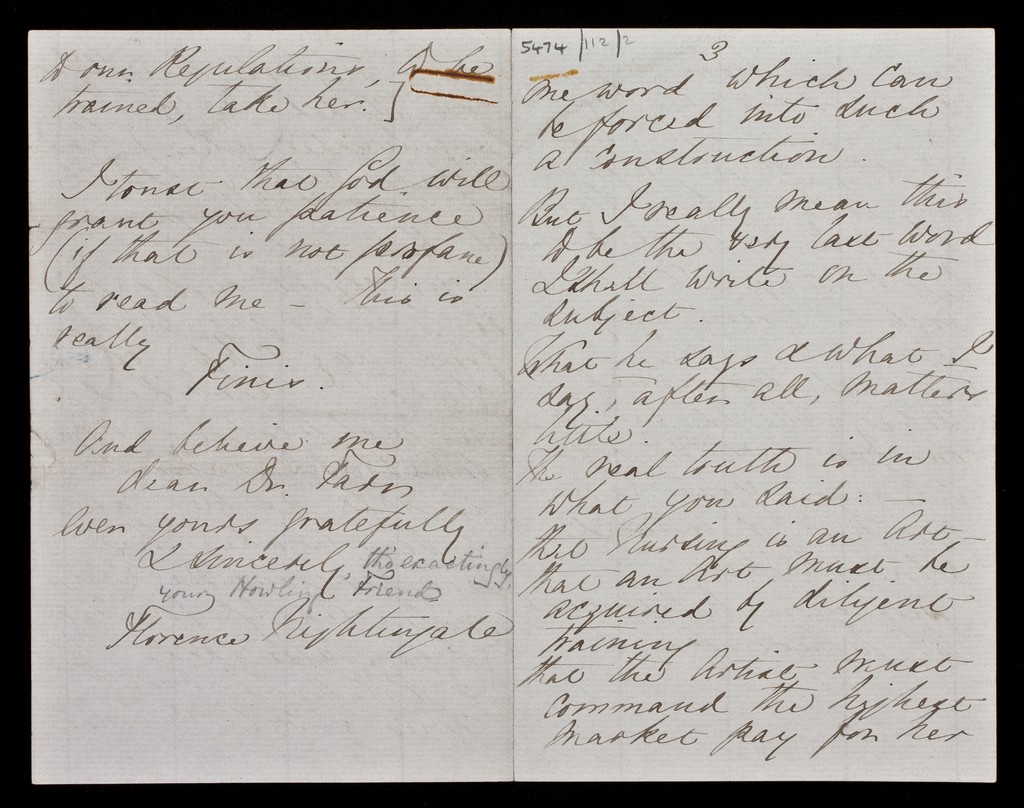 to our Regulations, & be
trained, take her.
I trust that God will
grant you patience
(if that is not profane)
to read me - This is
really
Finis.
And believe me
dear Dr. Farr
ever yours gratefully
& sincerely, tho' exactingly,
your Howling Friend
Florence Nightingale
5474/112/2
3
one word which can
be forced into such
a construction.
But I really mean this
to be the very last word
I shall write on the
subject.
What he says & what I
say, after all, matters
little.
The real truth is in
what you said: -
that Nursing is an Art -
that an Art must be
acquired by diligent
training
that the Artist must
command the highest
market pay for her